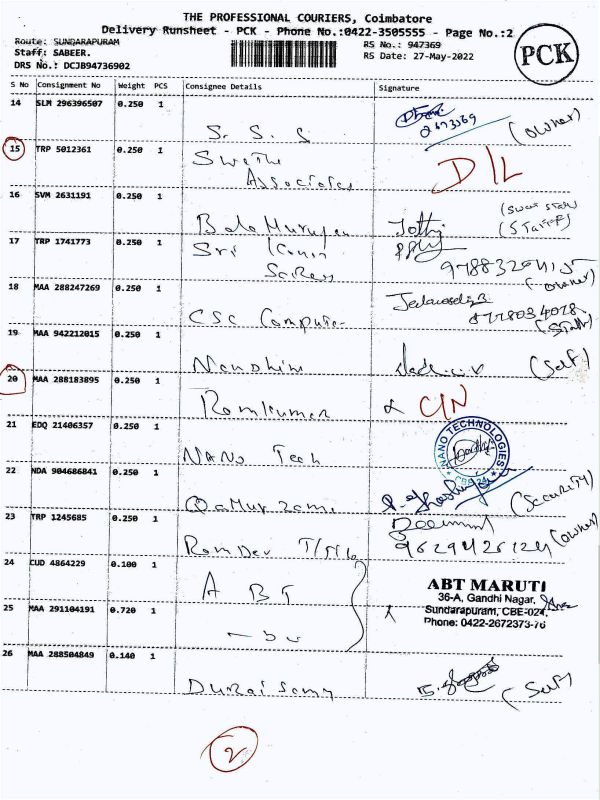 THE PROFESSIONAL COURIERS, Coimbatore
Delivery Runsheet - PCK - Phone No.:0422-3505555 - Page No.:2
Route: SUNDARAPURAM
RS No.: 947369
Staff: SABEER.
RS Date: 27-May-2022
DRS No.: DCJB94736902
PCK
S No Consignment No Weight PCS Consignee Details Signature
14 SLM 296396507 0.250 1 S. S. S (owner)
15 TRP 5012361 0.250 1 Swathi Associates D/L
16 SVM 2631191 0.250 1 Bala Murugan Jothi (Staff)
17 TRP 1741773 0.250 1 Sri (owner)
18 MAA 288247269 0.250 1 CSC Computer 8778034078 (Staff)
19 MAA 942212015 0.250 1 Manoshini (Self)
20 MAA 288183895 0.250 1 Ramkumar C/N
21 EDQ 21406357 0.250 1 NANO Tech NANO TECHNOLOGIES
22 NDA 904686841 0.250 1 (Security)
23 TRP 1245685 0.250 1 Ram Dev (owner)
24 CUD 4864229 0.100 1 A B T
ABT MARUTI
36-A, Gandhi Nagar,
25 MAA 291104191 0.720 1
Sundarapuram, CBE-024,
Phone: 0422-2672373-76
26 MAA 288504849 0.140 1 Durai Samy (Self)
2